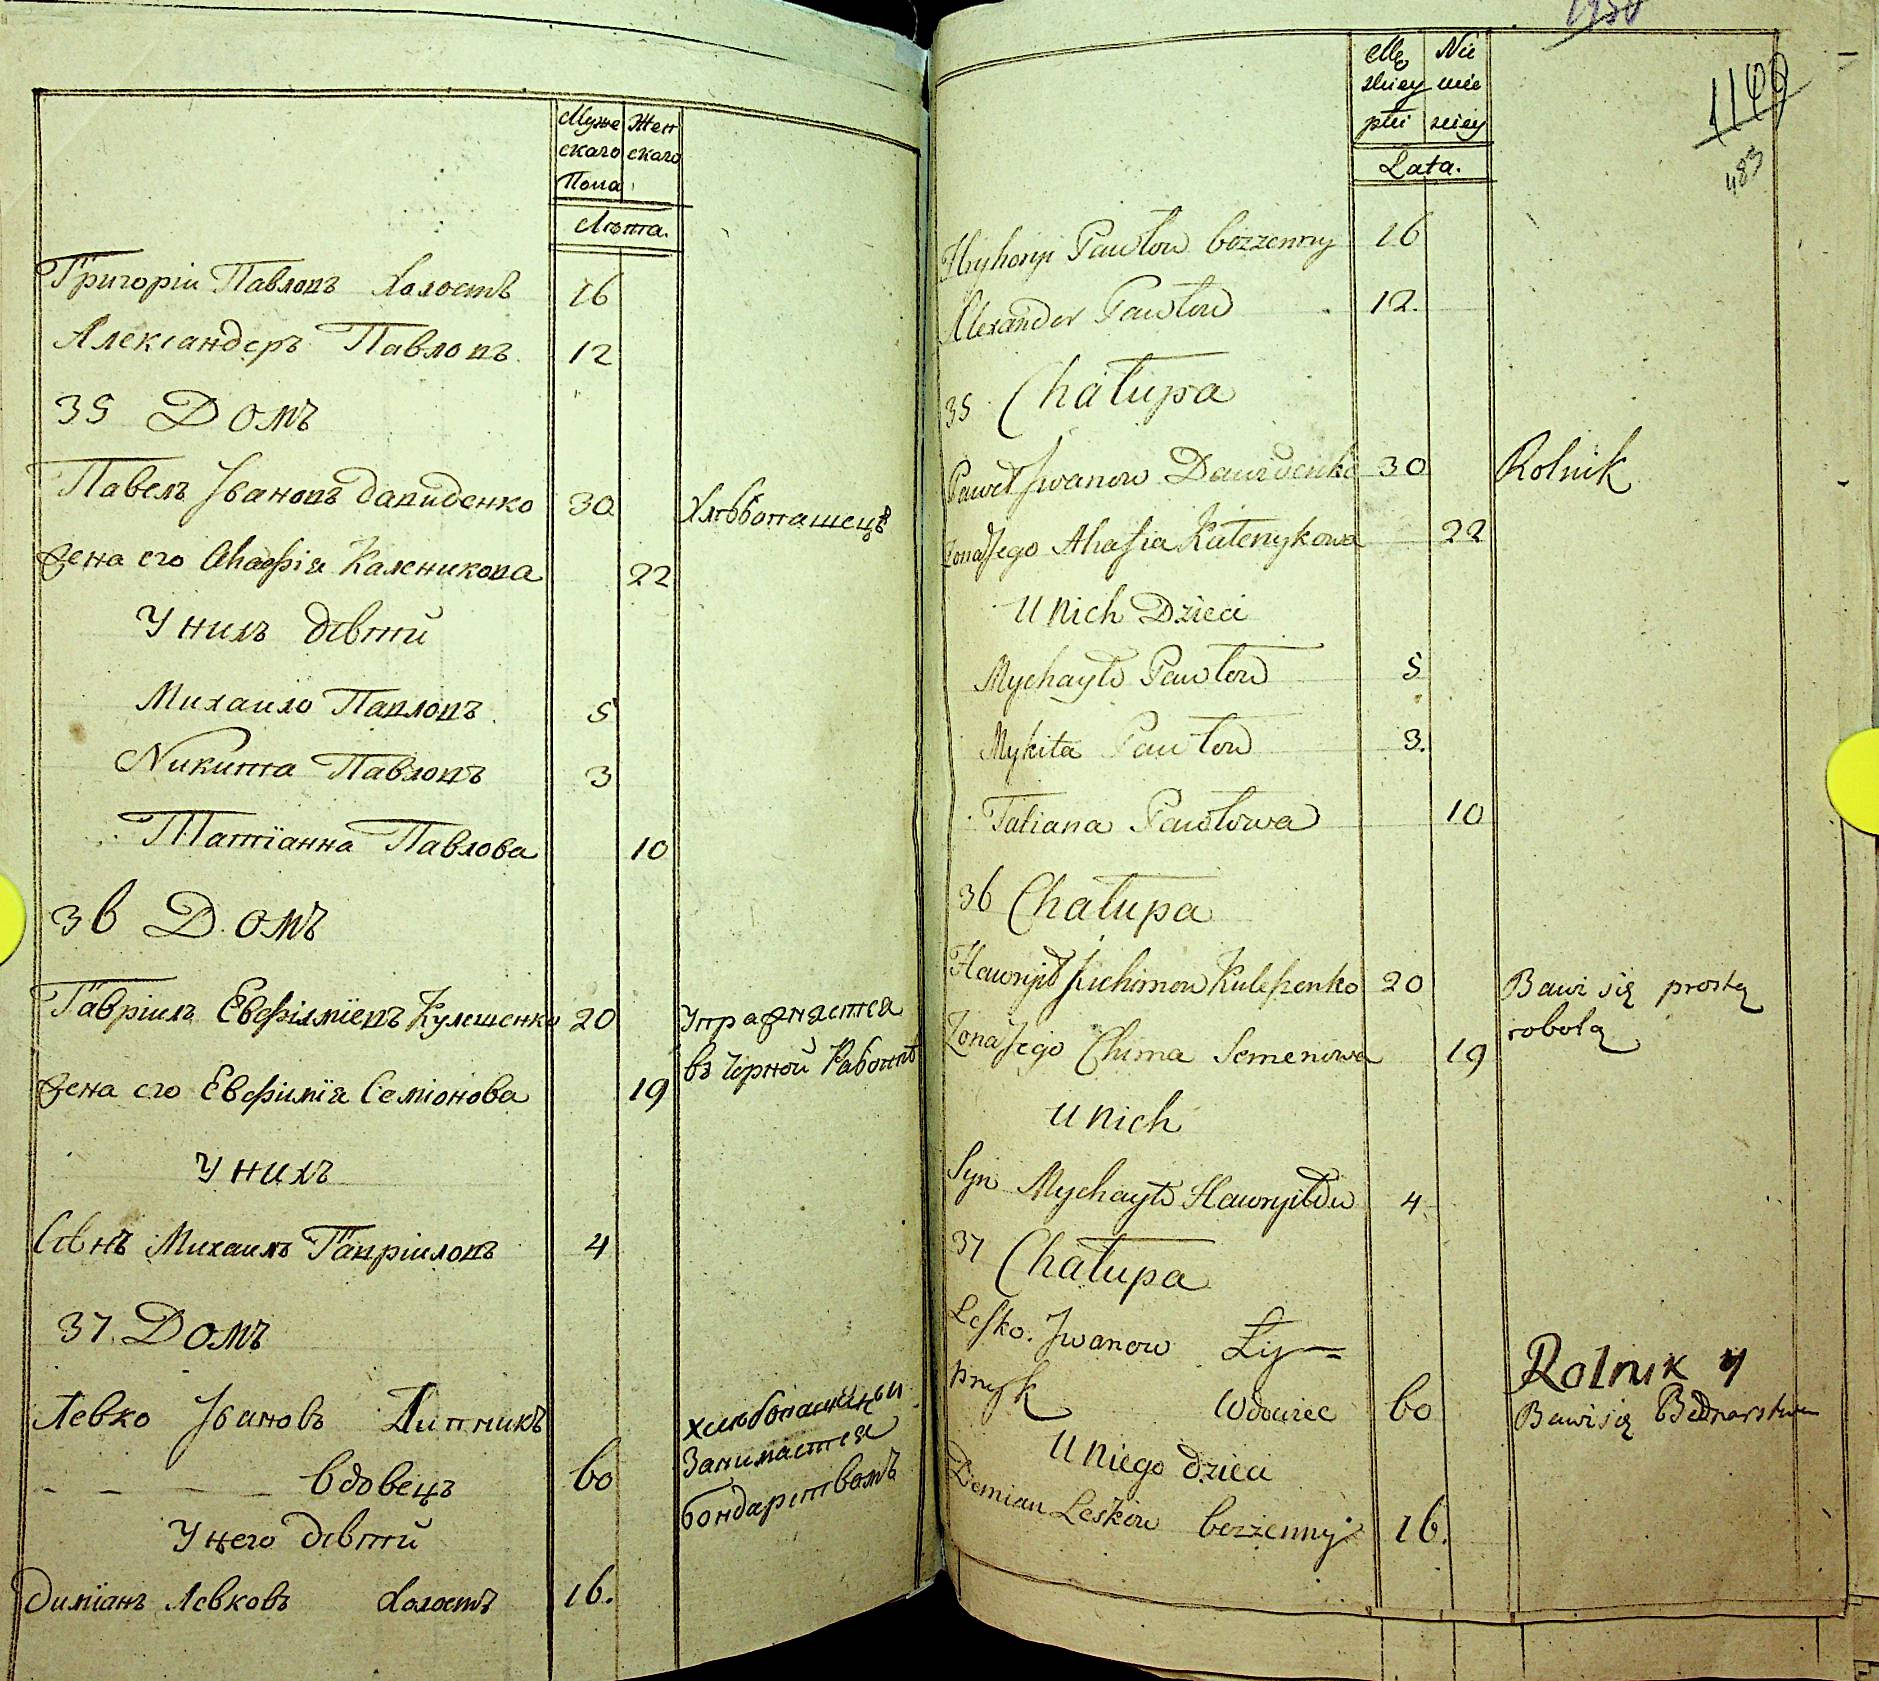 Муже Жен
скаго скаго
Пола
Лѣта.
Григоріи Павловъ Холостъ 16
Александеръ Павловъ 12
35 Домъ
Павелъ Івановъ Давиденко 30 Хлѣбопашецъ
Жена его Агафія Каленикова 22
У нихъ дѣтти
Михаило Павловъ 5
Никитта Павловъ 3
Таттіанна Павлова 10
36 Домъ
Гавріилъ Евфіміевъ Кулешенко 20 Упражняется
въ чорной Работѣ
Жена его Евфимія Семіонова 19
У нихъ
Сынъ Михаилъ Гавріиловъ 4
37. Домъ
Левко Івановъ Липникъ хлѣбопашецъ и
Занимается
вдовецъ 60 бондарствомъ
У него дѣтти
Диміанъ Левковъ Холостъ 16.
1149
483
Mę Nie
zkiey wie
płci sciey
Lata.
Hryhoryi Pawłow bezzenny 16
Alexander Pawłow 12.
35 Chałupa
Paweł Jwanow Dawidenko 30 Rolnik
Zona Jego Ahafia Kałenykowa 22
U nich Dzieci
Mychayło Pawłow 5
Mykita Pawłow 3.
Tatiana Pawłowa 10
36 Chałupa
Hawryił Juchimow Kuleszenko 20 Bawi się prostą
robotą
Zona Jego Chima Semenowa 19
U nich
Syn Mychayło Hawryiłow 4
37 Chałupa
Lesko. Jwanow Ły=
pnyk Wdowiec 60 Rolnik y
Bawi się Bednarstwem
U niego dzieci
Demian Leskow bezzenny 16.